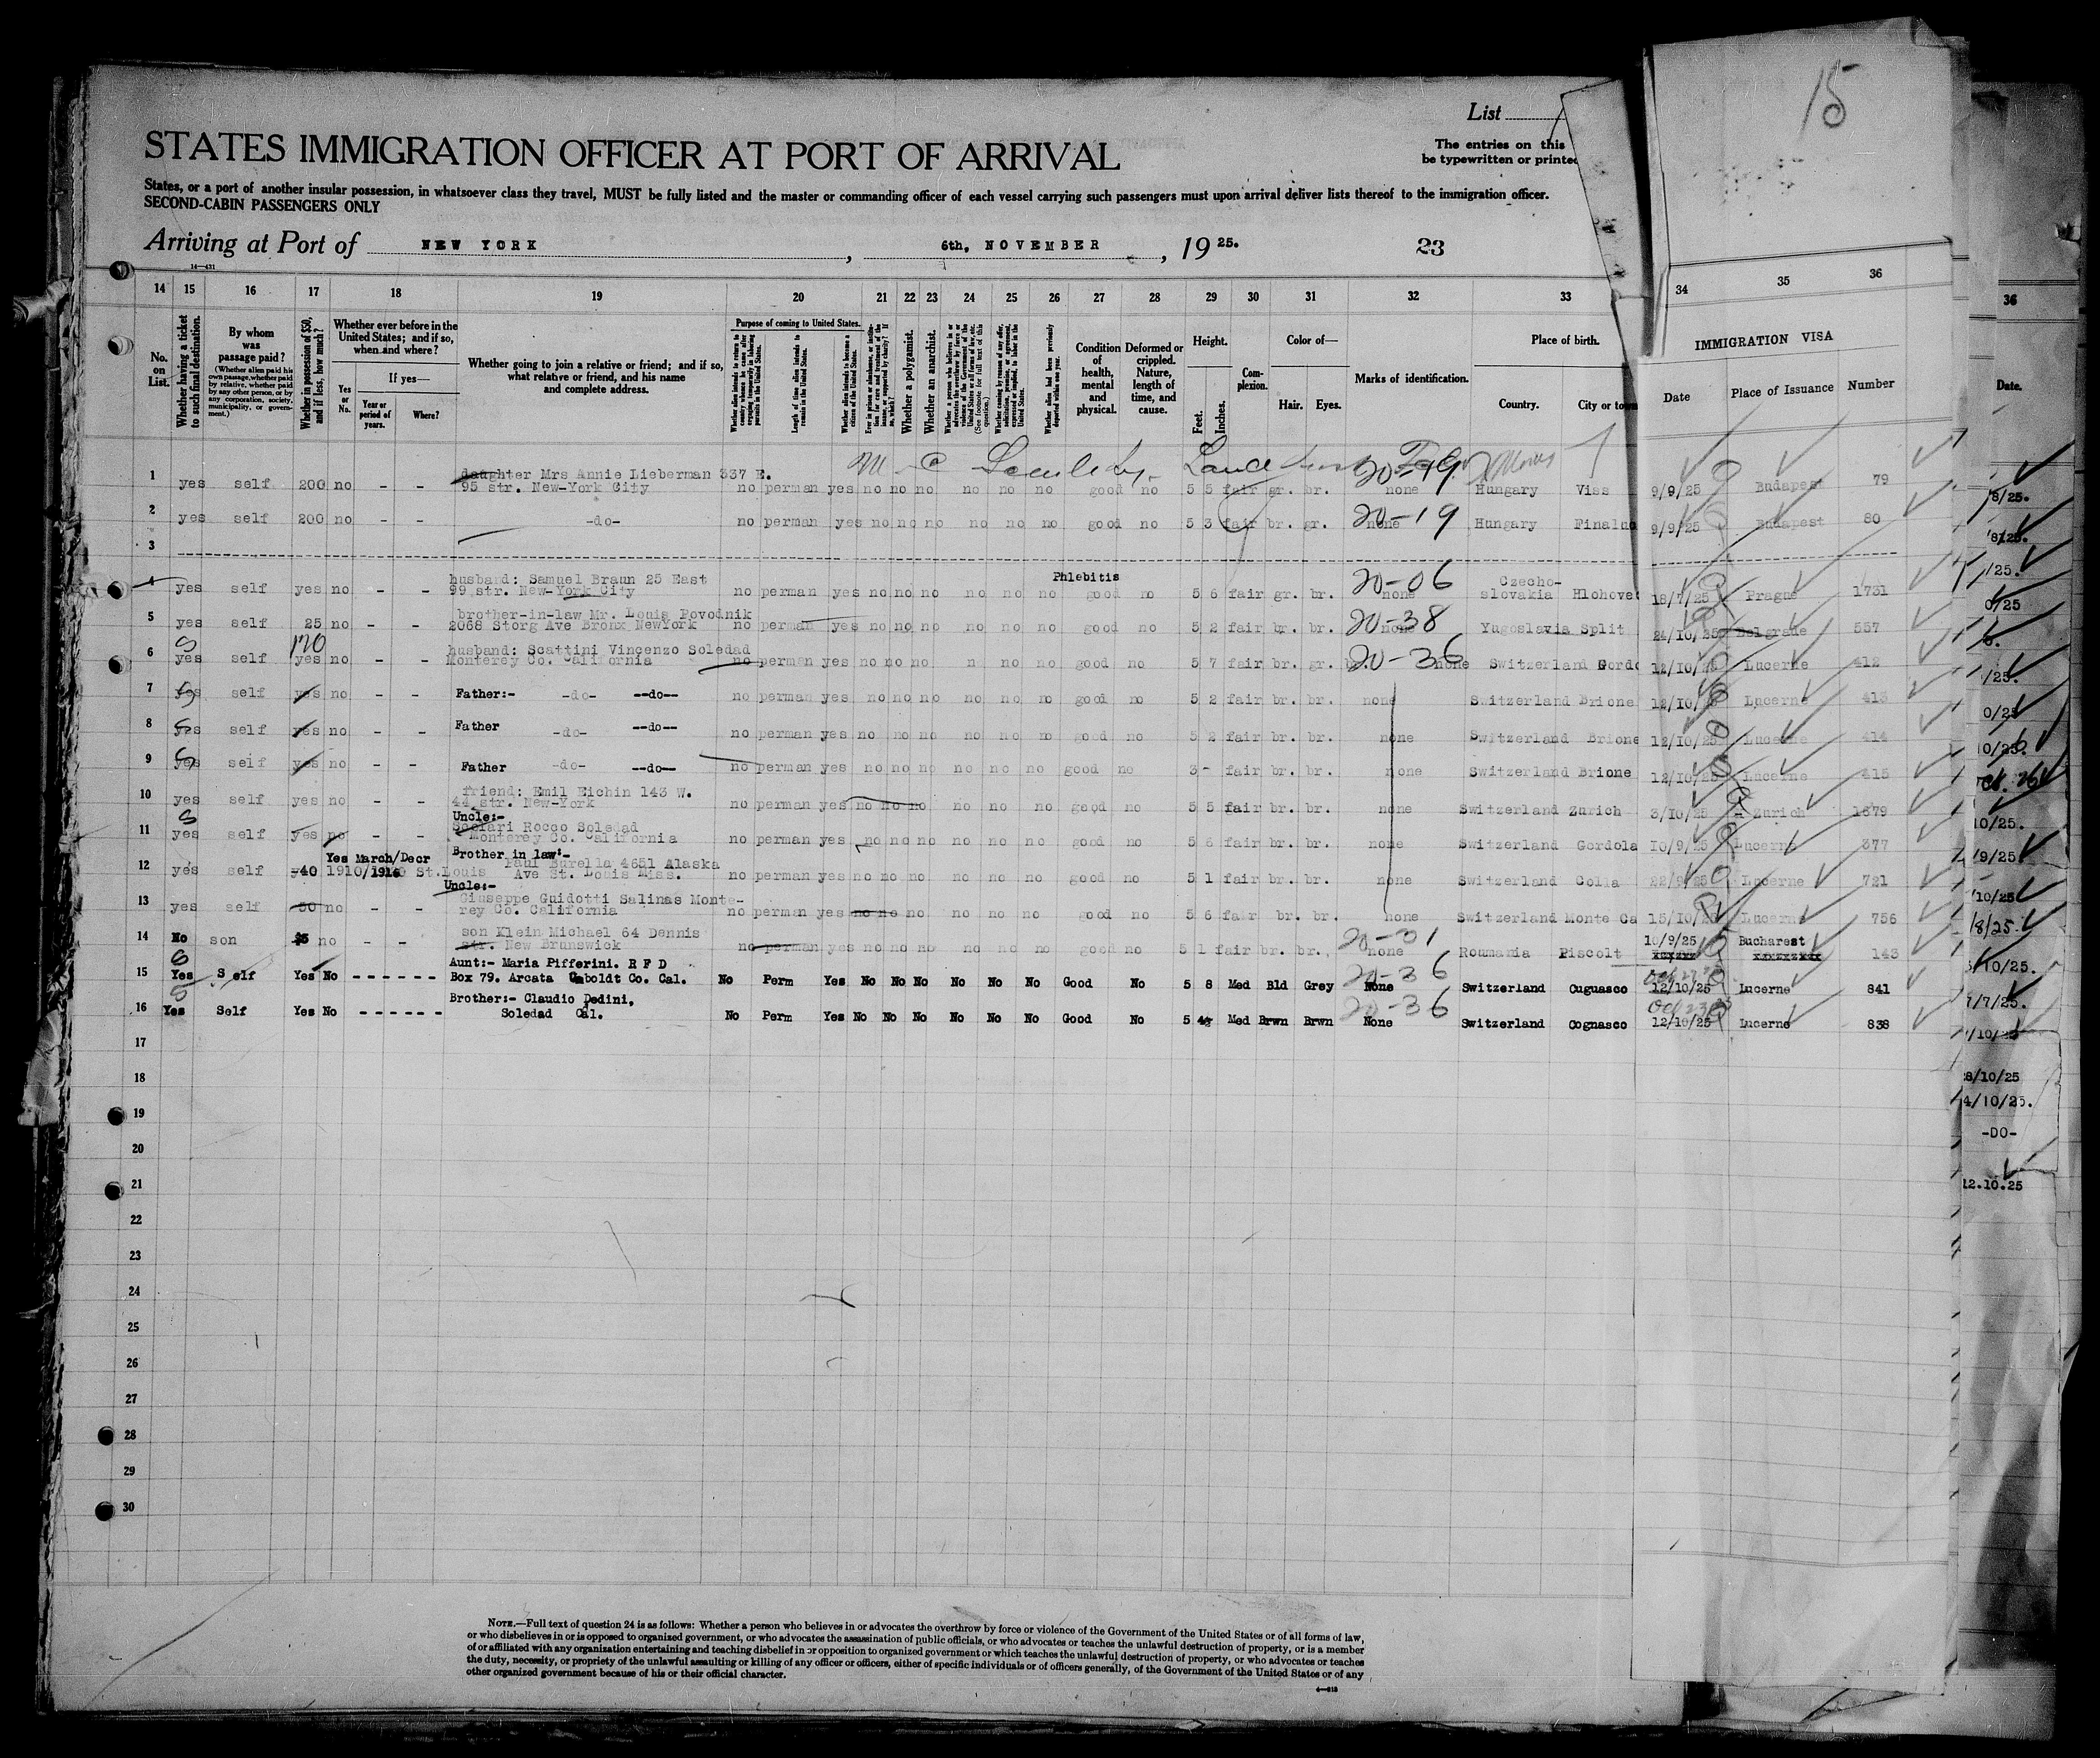 15
List
STATES IMMIGRATION OFFICER AT PORT OF ARRIVAL
The entries on this
be typewritten or printed
States, or a port of another insular possession, in whatsoever class they travel, MUST be fully listed and the master or commanding officer of each vessel carrying such passengers must upon arrival deliver lists thereof to the immigration officer.
SECOND-CABIN PASSENGERS ONLY
Arriving at Port of NEW YORK, 6th, NOVEMBER, 1925.
23
14—431
14 15 16 17 18 19 20 21 22 23 24 25 26 27 28 29 30 31 32 33 34 35 36
36
No. on List.
Whether having a ticket to such final destination.
By whom was passage paid?
(Whether alien paid his own passage, whether paid by relative, whether paid by any other person, or by any corporation, society, municipality, or government.)
Whether in possession of $50, and if less, how much?
Whether ever before in the United States; and if so, when and where?
If yes—
Yes or No.
Year or period of years.
Where?
Whether going to join a relative or friend; and if so, what relative or friend, and his name and complete address.
Purpose of coming to United States.
Length of time alien intends to remain in the United States.
Whether alien intends to become a citizen of the United States.
Whether a polygamist.
Whether an anarchist.
Condition of health, mental and physical.
Deformed or crippled. Nature, length of time, and cause.
Height.
Feet.
Inches.
Complexion.
Color of—
Hair. Eyes.
Marks of identification.
Place of birth.
Country. City or town
IMMIGRATION VISA
Date Place of Issuance Number
Date.
1 yes self 200 no - - daughter Mrs Annie Lieberman 337 E.
95 str. New-York City no perman yes no no no no no no good no 5 5 fair gr. br. 20-19 none Hungary Viss 9/9/25 Budapest 79
2 yes self 200 no - - -do- no perman yes no no no no no no good no 5 3 fair br. gr. 20-19 none Hungary 9/9/25 Budapest 80
3
4 yes self yes no - - husband: Samuel Braun 25 East
99 str. New-York City no perman yes no no no no no no Phlebitis good no 5 6 fair gr. br. 20-06 none Czecho-
slovakia Hlohovec 18/7/25 Prague 1731
5 yes self 25 no - - brother-in-law Mr. Louis Povodnik
2068 Storg Ave Bronx NewYork no perman yes no no no no no no good no 5 2 fair br. br. 20-38 none Yugoslavia Split 24/10/25 Belgrade 557
6 yes self 170 yes no - - husband: Scattini Vincenzo Soledad
Monterey Co. California no perman yes no no no n no no good no 5 7 fair br. gr. 20-36 none Switzerland Gordo 12/10/25 Lucerne 412
7 yes self yes no - - Father:- -do- --do-- no perman yes no no no no no no good no 5 2 fair br. br. none Switzerland Brione 12/10/25 Lucerne 413
8 yes self yes no - - Father -do- --do-- no perman yes no no no no no no good no 5 2 fair br. br. none Switzerland Brione 12/10/25 Lucerne 414
9 yes self yes no - - Father -do- --do-- no perman yes no no no no no no good no 3 - fair br. br. none Switzerland Brione 12/10/25 Lucerne 415
10 yes self yes no - - friend: Emil Eichin 143 W.
44 str. New-York no perman yes no no no no no no good no 5 5 fair br. br. none Switzerland Zurich 3/10/25 Zurich 1679
11 yes self yes no - - Uncle:-
Rocco Soledad
Monterey Co. California no perman yes no no no no no no good no 5 6 fair br. br. none Switzerland Gordola 10/9/25 Lucerne 377
12 yes self 40 Yes March/Decr 1910/1916 St.Louis Brother in law:-
Paul Burella 4651 Alaska
Ave St. Louis Miss. no perman yes no no no no no no good no 5 1 fair br. br. none Switzerland Colla 22/9/25 Lucerne 721
13 yes self 50 no - - Uncle:-
Giuseppe Guidotti Salinas Monte-
rey Co. California no perman yes no no no no no no good no 5 6 fair br. br. none Switzerland Monte Ca 15/10/25 Lucerne 756
14 No son $5 no - - son Klein Michael 64 Dennis
str. New Brunswick no perman yes no no no no no no good no 5 1 fair br. br. none Roumania Piscolt 10/9/25 Bucharest 143
15 Yes Self Yes No - - - - - - Aunt:- Maria Pifferini. R F D
Box 79. Arcata Umboldt Co. Cal. No Perm Yes No No No No No No Good No 5 8 Med Bld Grey 20-36 None Switzerland Cuguasco 12/10/25 Lucerne 841
16 Yes Self Yes No - - - - - - Brother:- Claudio Dedini,
Soledad Cal. No Perm Yes No No No No No No Good No 5 4½ Med Brwn Brwn 20-36 None Switzerland Cognasco 12/10/25 Lucerne 838
17
18
19
20
21
22
23
24
25
26
27
28
29
30
8/10/25
4/10/25.
-DO-
12.10.25
NOTE.—Full text of question 24 is as follows: Whether a person who believes in or advocates the overthrow by force or violence of the Government of the United States or of all forms of law,
or who disbelieves in or is opposed to organized government, or who advocates the assassination of public officials, or who advocates or teaches the unlawful destruction of property, or is a member
of or affiliated with any organization entertaining and teaching disbelief in or opposition to organized government or which teaches the unlawful destruction of property, or who advocates or teaches
the duty, necessity, or propriety of the unlawful assaulting or killing of any officer or officers, either of specific individuals or of officers generally, of the Government of the United States or of any
other organized government because of his or their official character.